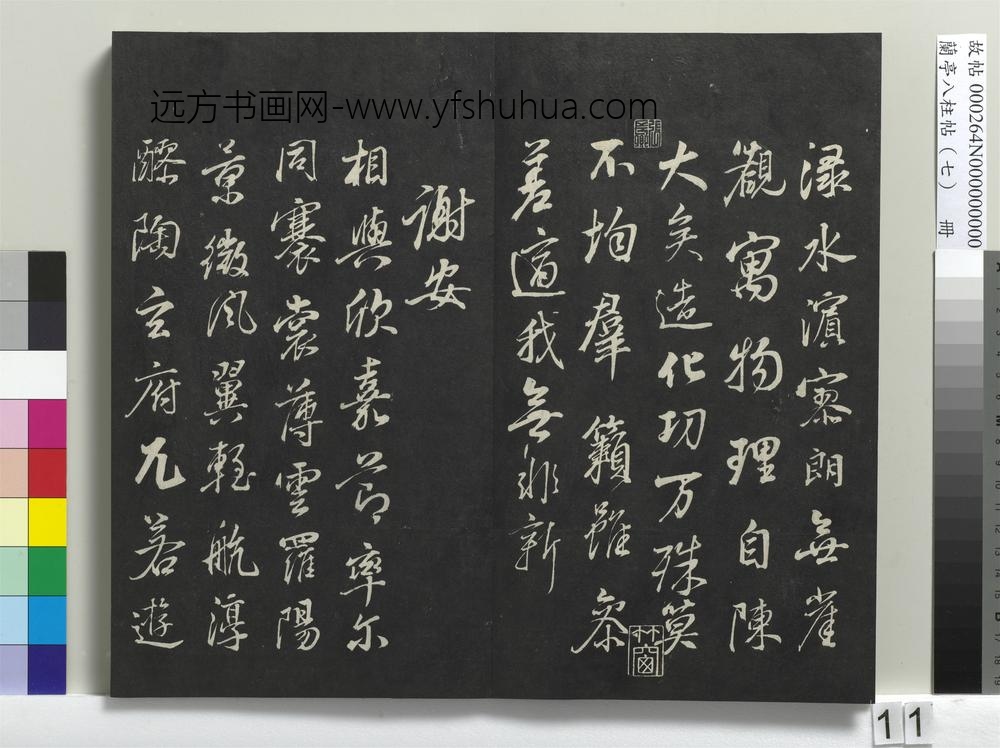 远方书画网-www.yfshuhua.com
渌水濱寥朗無崖
觀寓物理自陳
大矣造化功万殊莫
不均羣籟雖參
差適我無非新
謝安
相與欣嘉節率尔
同褰裳薄雲羅陽
景微風翼輕航淳
醪陶玄府兀若遊
故帖 000264N000000000
蘭亭八柱帖(七) 冊
11